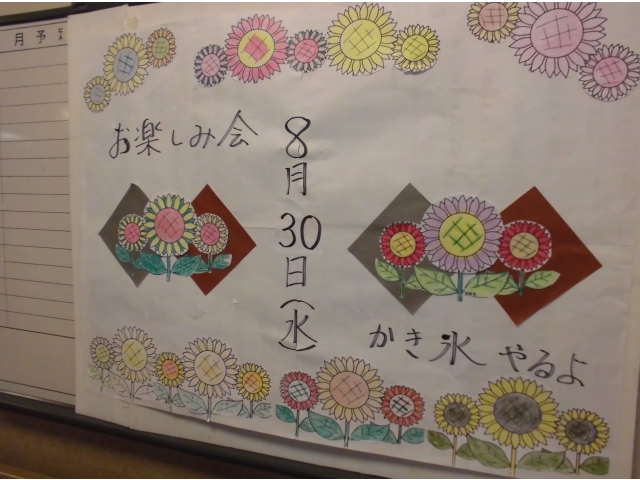 月予定
お楽しみ会
8月30日(水)
かき氷 やるよ